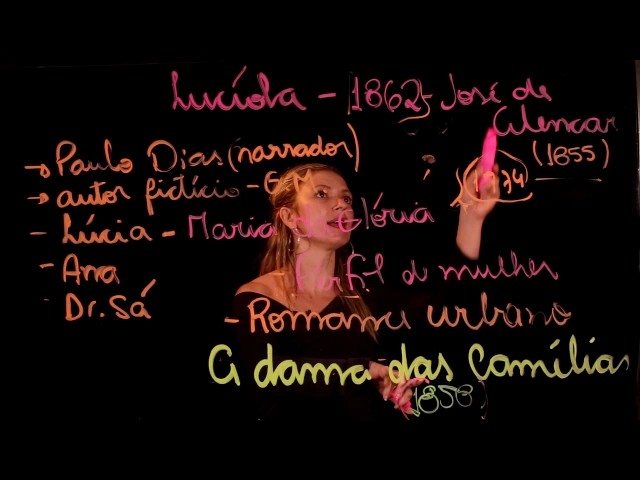 Lucíola - 1862 - José de Alencar
(1855)
→ Paulo Dias (narrador)
→ autor fictício - G
- Lúcia - Maria Glória
- Ana
- Perfil d mulher
Dr. Sá
- Romance urbano
A dama das Camélias
(1858)